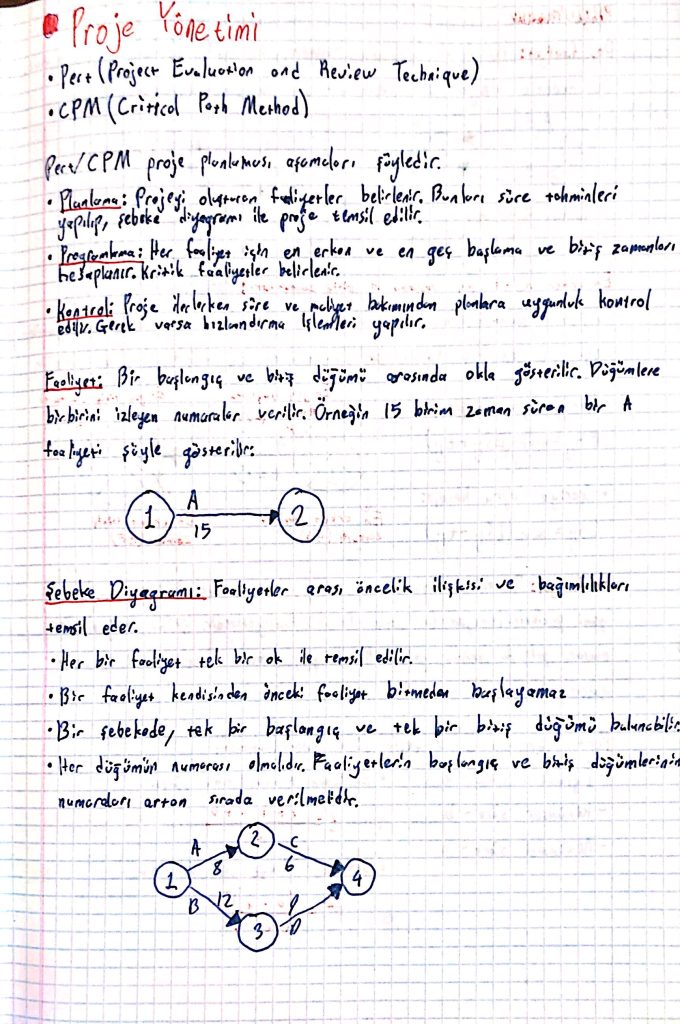 Proje Yönetimi
• Pert (Project Evaluation and Review Technique)
• CPM (Critical Path Method)
Pert/CPM proje planlaması aşamaları şöyledir.
• Planlama: Projeyi oluşturan faaliyetler belirlenir. Bunları süre tahminleri
yapılıp, şebeke diyagramı ile proje temsil edilir.
• Programlama: Her faaliyet için en erken ve en geç başlama ve bitiş zamanları
hesaplanır. Kritik faaliyetler belirlenir.
• Kontrol: Proje ilerlerken süre ve maliyet bakımından planlara uygunluk kontrol
edilir. Gerek varsa hızlandırma işlemleri yapılır.
Faaliyet: Bir başlangıç ve bitiş düğümü arasında okla gösterilir. Düğümlere
birbirini izleyen numaralar verilir. Örneğin 15 birim zaman süren bir A
faaliyeti şöyle gösterilir:
1 A 15 2
Şebeke Diyagramı: Faaliyetler arası öncelik ilişkisi ve bağımlılıkları
temsil eder.
• Her bir faaliyet tek bir ok ile temsil edilir.
• Bir faaliyet kendisinden önceki faaliyet bitmeden başlayamaz
• Bir şebekede, tek bir başlangıç ve tek bir bitiş düğümü bulunabilir
• Her düğümün numarası olmalıdır. Faaliyetlerin başlangıç ve bitiş düğümlerinin
numaraları artan sırada verilmelidir.
A 2 C
8 6
1 4
B 12 9
3 D